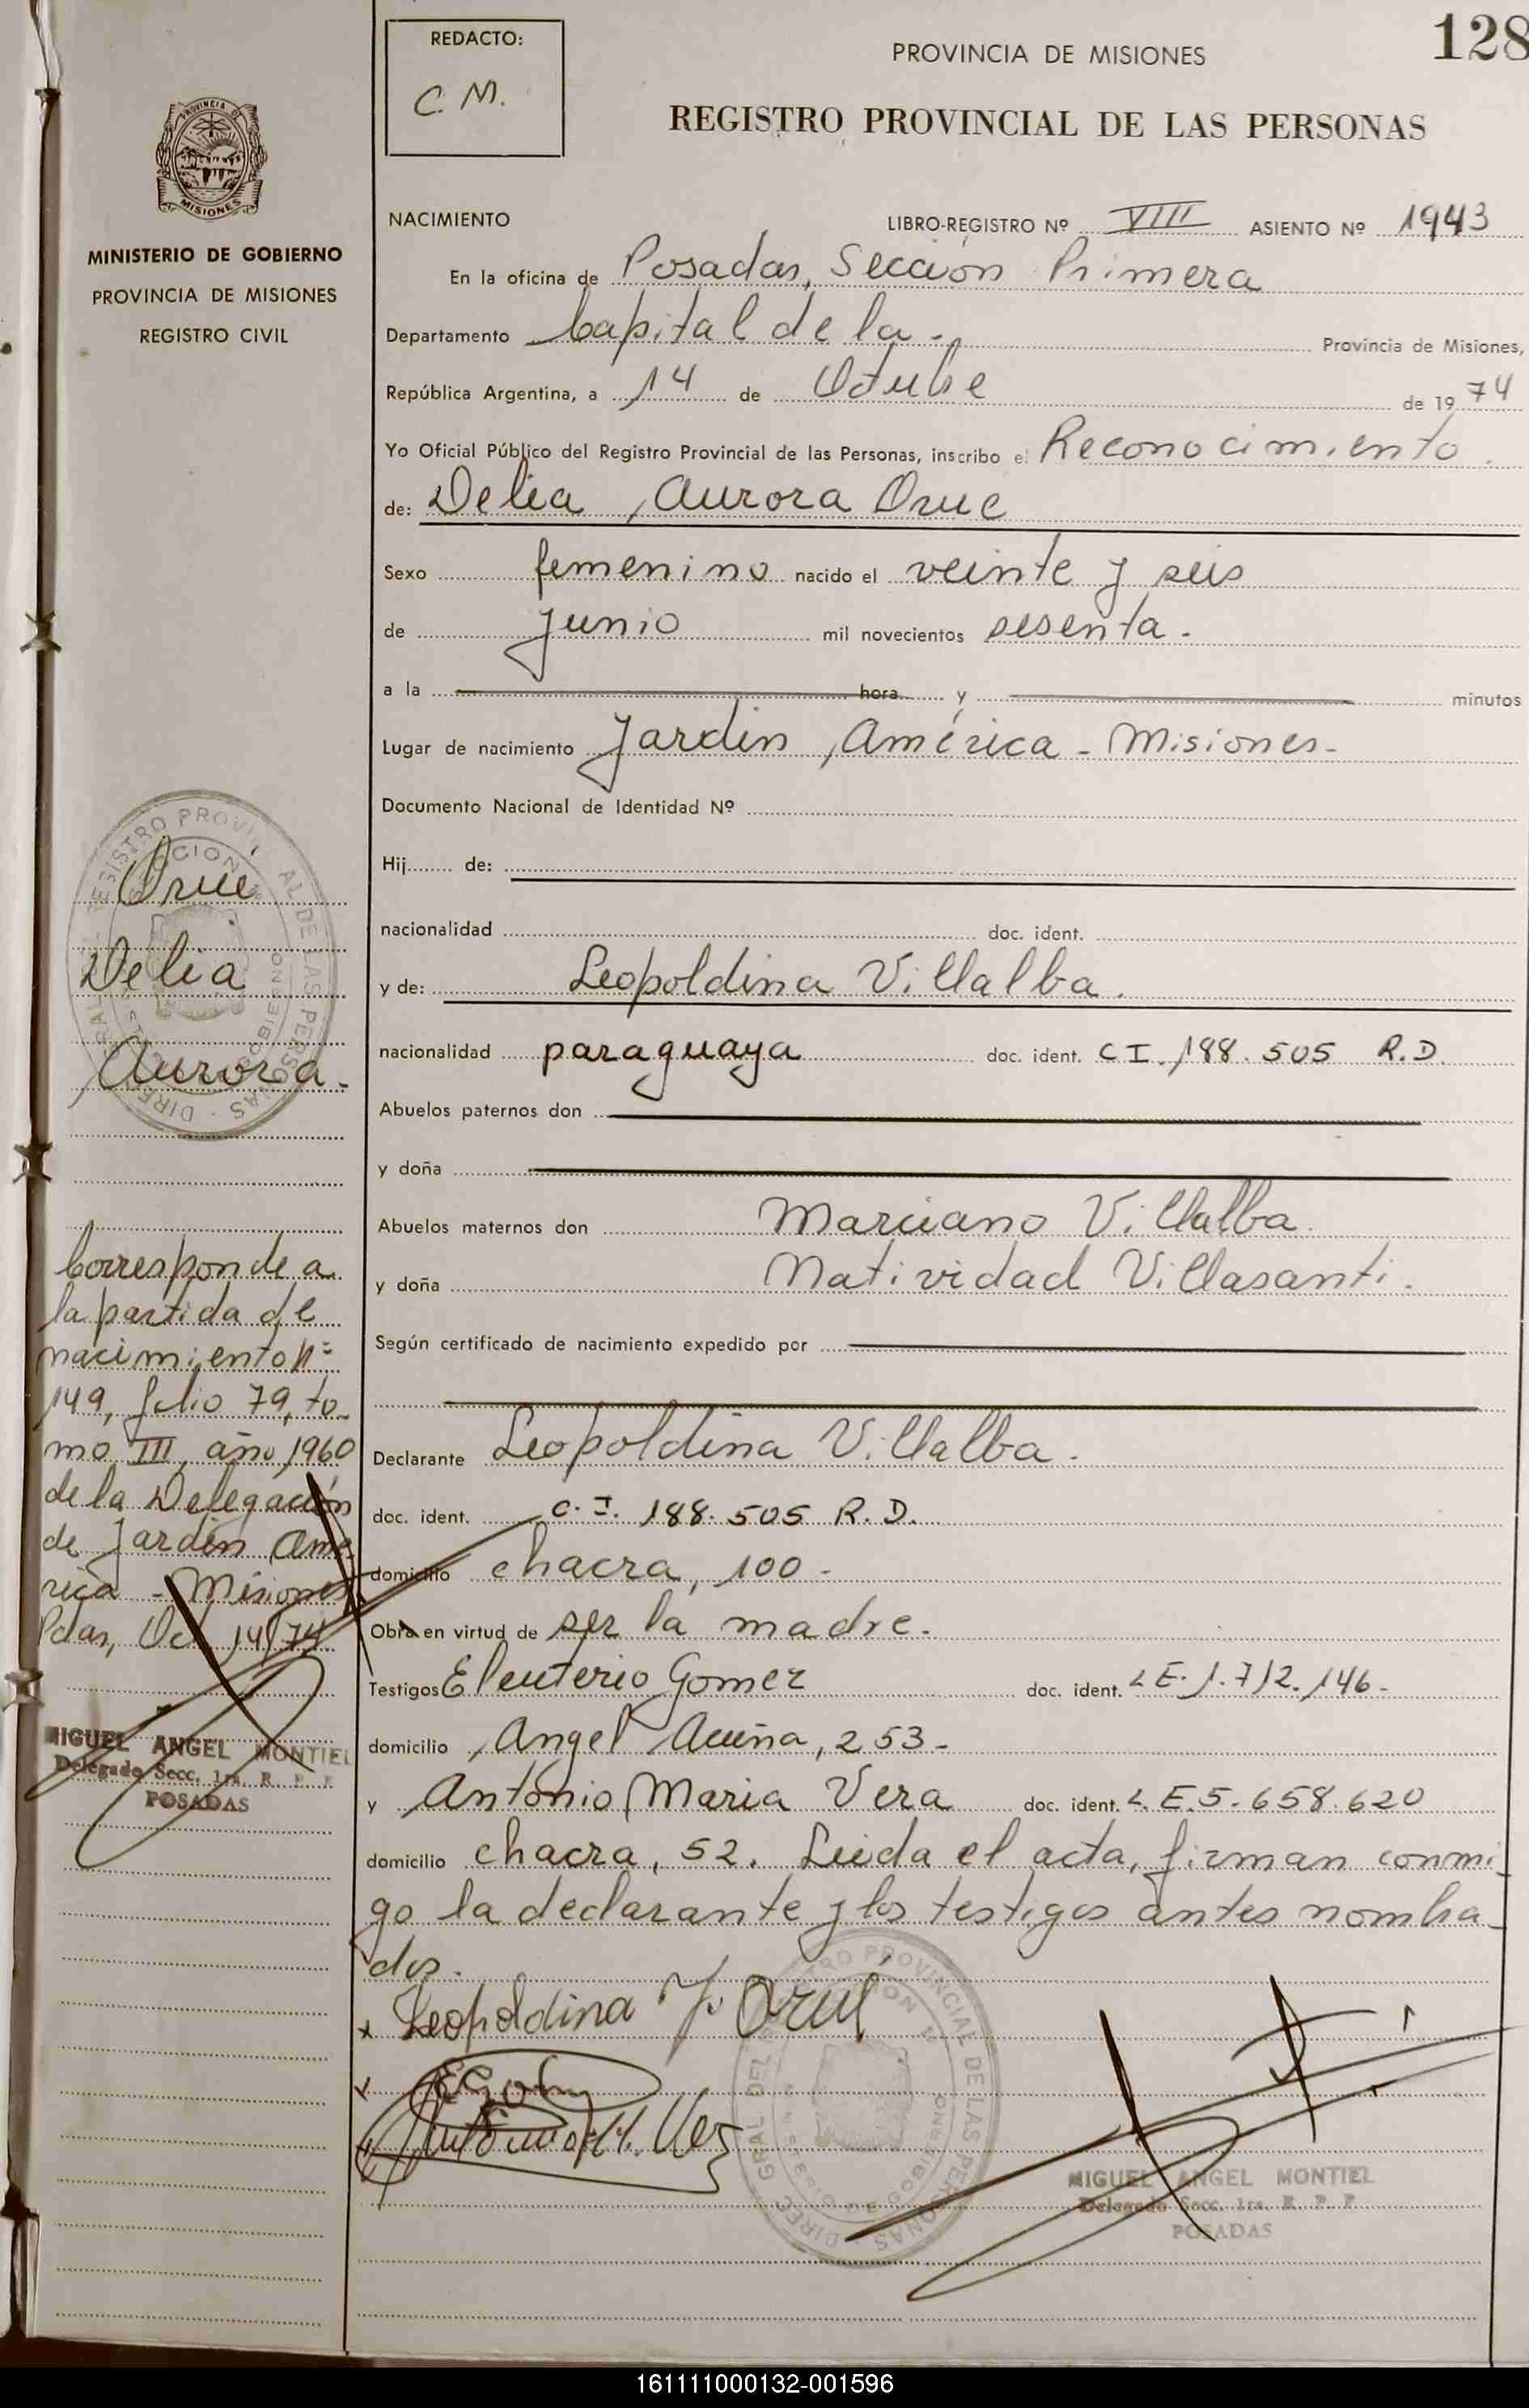 REDACTO:
C. M.
PROVINCIA DE MISIONES
128
REGISTRO PROVINCIAL DE LAS PERSONAS
PROVINCIA
MISIONES
MINISTERIO DE GOBIERNO
PROVINCIA DE MISIONES
REGISTRO CIVIL
NACIMIENTO LIBRO-REGISTRO Nº VIII ASIENTO Nº 1943
En la oficina de Posadas, Sección Primera
Departamento Capital de la - Provincia de Misiones,
República Argentina, a 14 de Octubre de 1974
Yo Oficial Público del Registro Provincial de las Personas, inscribo el Reconocimiento.
de: Delia Aurora Orue
Sexo femenino nacido el veinte y seis
de junio mil novecientos sesenta.-
a la hora y minutos
Lugar de nacimiento Jardin América - Misiones-
Documento Nacional de Identidad Nº
Hij de:
nacionalidad doc. ident.
y de: Leopoldina Villalba.
nacionalidad paraguaya doc. ident. C I. 188.505 R.D.
Abuelos paternos don
y doña
Abuelos maternos don Marciano Villalba.
y doña Natividad Villasanti.
Según certificado de nacimiento expedido por
Declarante Leopoldina Villalba.
doc. ident. C.I. 188.505 R.D.
domicilio chacra, 100-
Obra en virtud de ser la madre.
Testigos Eleuterio Gomez doc. ident. L E. 1.712.146-
domicilio Angel Acuña, 253-
y Antonio Maria Vera doc. ident. L.E. 5.658.620
domicilio chacra, 52. Leida el acta, firman conmi-
go la declarante y los testigos antes nombra-
dos.
x Leopoldina V. Orué
MIGUEL ANGEL MONTIEL
Delegado Secc. 1ra. R. P. P.
POSADAS
Orue
Delia
Aurora.
Corresponde a
la partida de
nacimiento Nº
149, folio 79, to-
mo III, año 1960
de la Delegación
de Jardin Amé-
rica - Misiones
Pdas, Oct 14/74
MIGUEL ANGEL MONTIEL
Delegado Secc. 1ra. R. P. P.
POSADAS
161111000132-001596